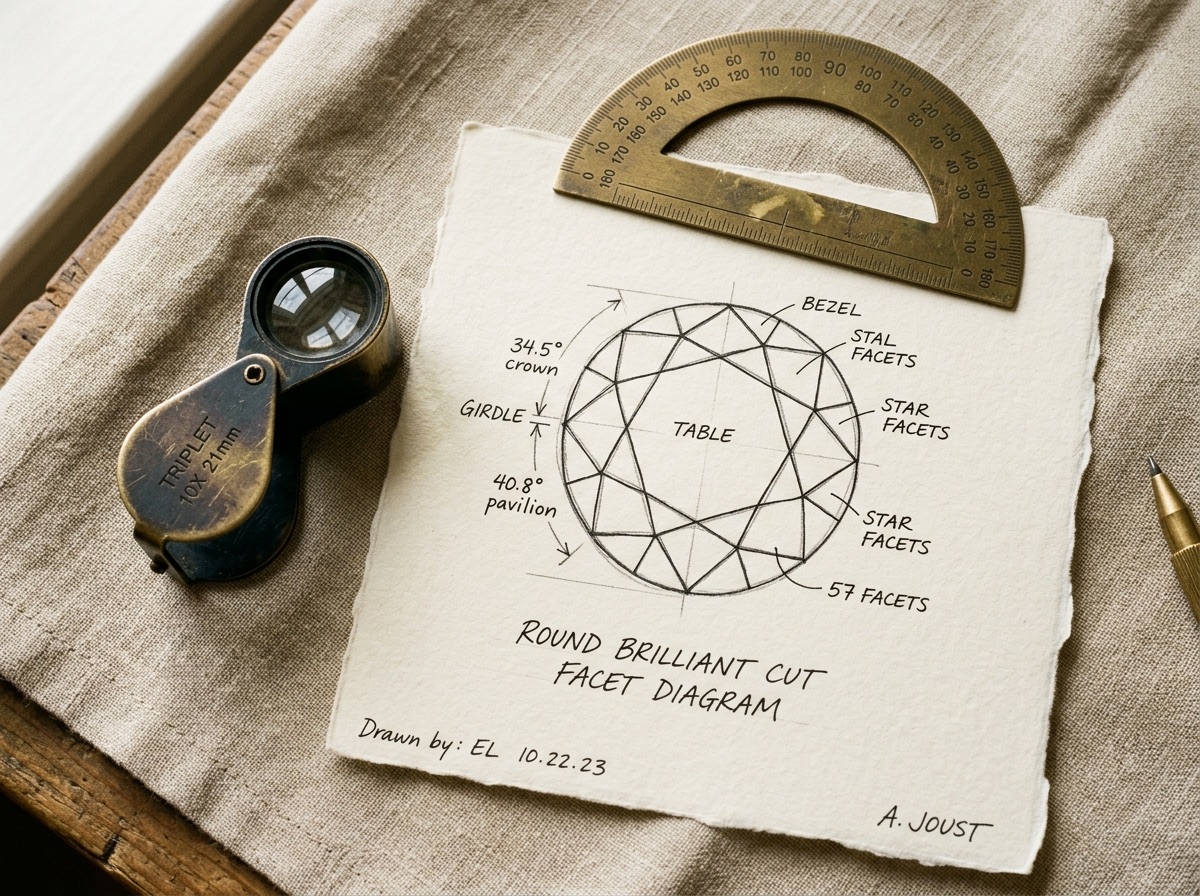 0 10 20 30 40 50 60 70 80 90 100 110 120 130 140 150 160 170 180
180 170 160 150 140 130 120 110 100 80 70 60 50 40 30 20 10 0
BEZEL
STAL
FACETS
34.5°
crown
STAR
FACETS
GIRDLE
TABLE
TRIPLET
10X 21mm
40.8°
pavilion
STAR
FACETS
57 FACETS
ROUND BRILLIANT CUT
FACET DIAGRAM
Drawn by: EL 10.22.23
A. JOUST